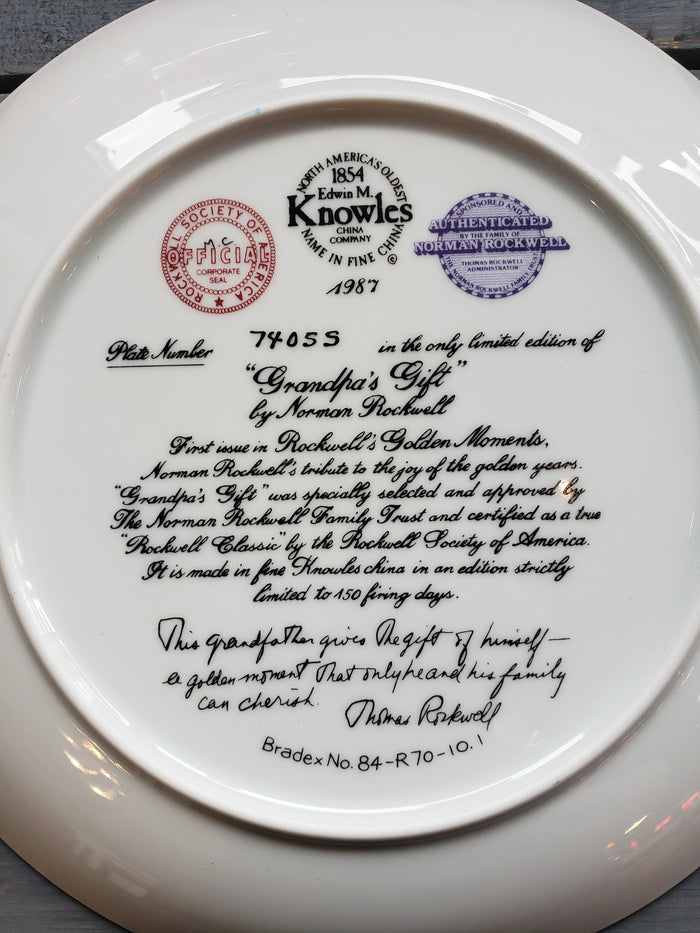 ROCKWELL SOCIETY OF AMERICA
MC
OFFICIAL
CORPORATE
SEAL
NORTH AMERICA'S OLDEST
1854
Edwin M.
Knowles
CHINA
COMPANY
NAME IN FINE CHINA
©
1987
SPONSORED AND
AUTHENTICATED
BY THE FAMILY OF
NORMAN ROCKWELL
THOMAS ROCKWELL
ADMINISTRATOR
NORMAN ROCKWELL FAMILY TRUST
Plate Number 7405S in the only limited edition of
"Grandpa's Gift"
by Norman Rockwell
First issue in Rockwell's Golden Moments,
Norman Rockwell's tribute to the joy of the golden years.
"Grandpa's Gift" was specially selected and approved by
The Norman Rockwell Family Trust and certified as a true
"Rockwell Classic" by the Rockwell Society of America.
It is made in fine Knowles china in an edition strictly
limited to 150 firing days.
This grandfather gives the gift of himself—
a golden moment that only he and his family
can cherish.
Thomas Rockwell
Bradex No. 84-R70-10.1